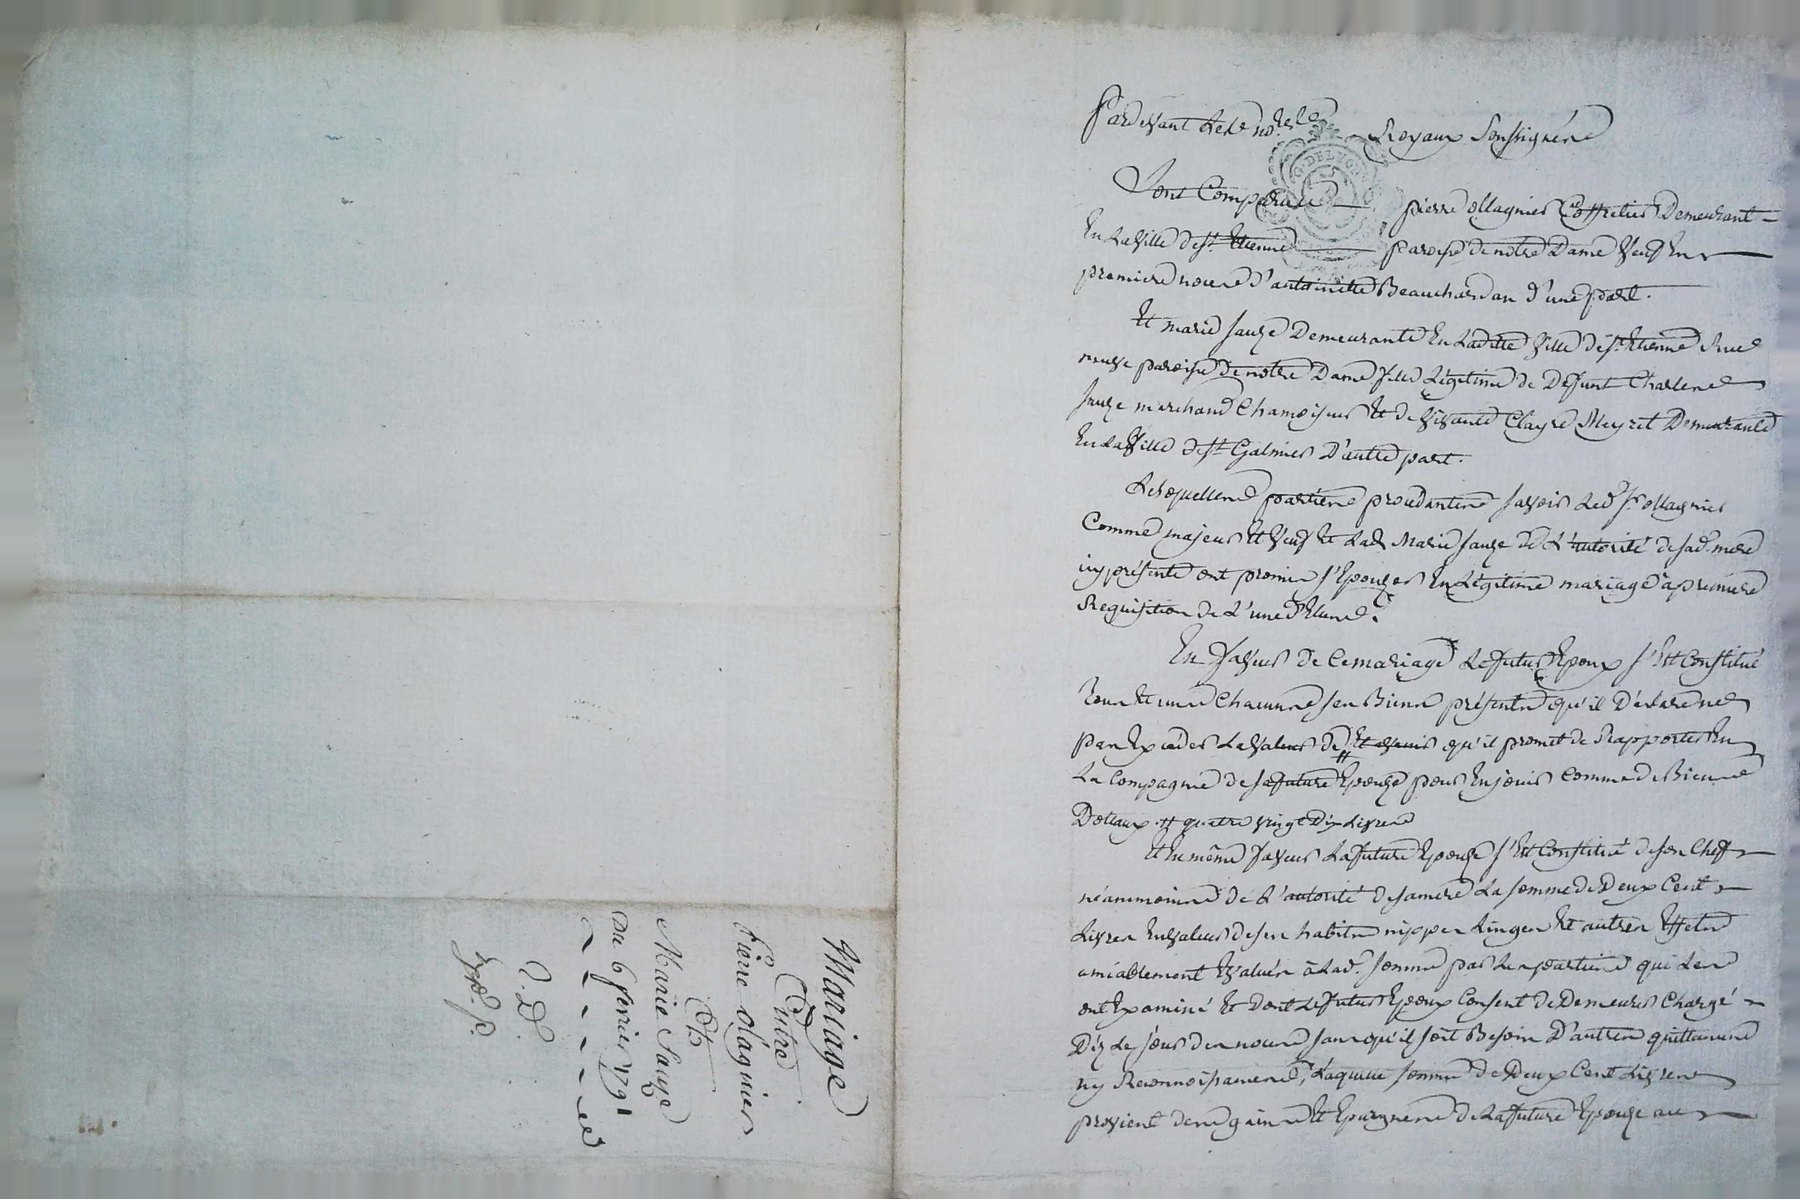 Mariage
Entre
Pierre olagnier
Et
Marie Sauze
Du 6 fevrier 1791
Pardevant Les no.res
Royaux Soussignés
G. DE LYON
Sont Comparus pierre ollagnier Coffretier Demeurant
En La Ville de St. Etienne paroisse de notre Dame Veuf En
premiere noces d'antoinette Beauchardan d'une part.
Et marie Sauze Demeurante En Laditte Ville de St. Etienne Rue
neuve paroisse de notre Dame fille Légitime de Deffunt Charles
Sauze marchand Chamoiseur Et de Vivante Clayre Meyret Demeurante
En La Ville de St. Galmier D'autre part.
Lesquelles parties procedantes Savoir Led. Sr. ollagnier
Comme majeur Et Veuf Et Lad. Marie Sauze de L'autorité de sad. mere
icy présente ont promis s'Epouzer En Légitime mariage a premiere
Requisition de L'une d'Elune.
En faveur de Ce mariage Le futur Epoux s'Est Constitué
tous Et uns Chacuns ses Biens présents qu'il Déclare ne
pas Exceder La Valeur de # Et avenir qu'il promet de Rapporter En
La Compagnie de sa future Epouze pour En jouir Comme de Biens
Dottaux. # quatre vingt Dix Livres
Et En même faveur La future Epouze s'Est Constitué de son Chef
néanmoins de L'autorité de sa mere La somme de Deux Cent
Livres En valeur de ses habits nippes Linges Et autres Effets
amiablement Evalués a Lad. somme par Les parties qui Les
ont Examiné Et Dont Le futur Epoux Consent de Demeurer Chargé
Dez Le jour des noces sans qu'il soit Besoin D'autres quittances
ny Reconnoissances, Laquelle somme de Deux Cent Livres
provient des gains Et Epargnes de La future Epouze au